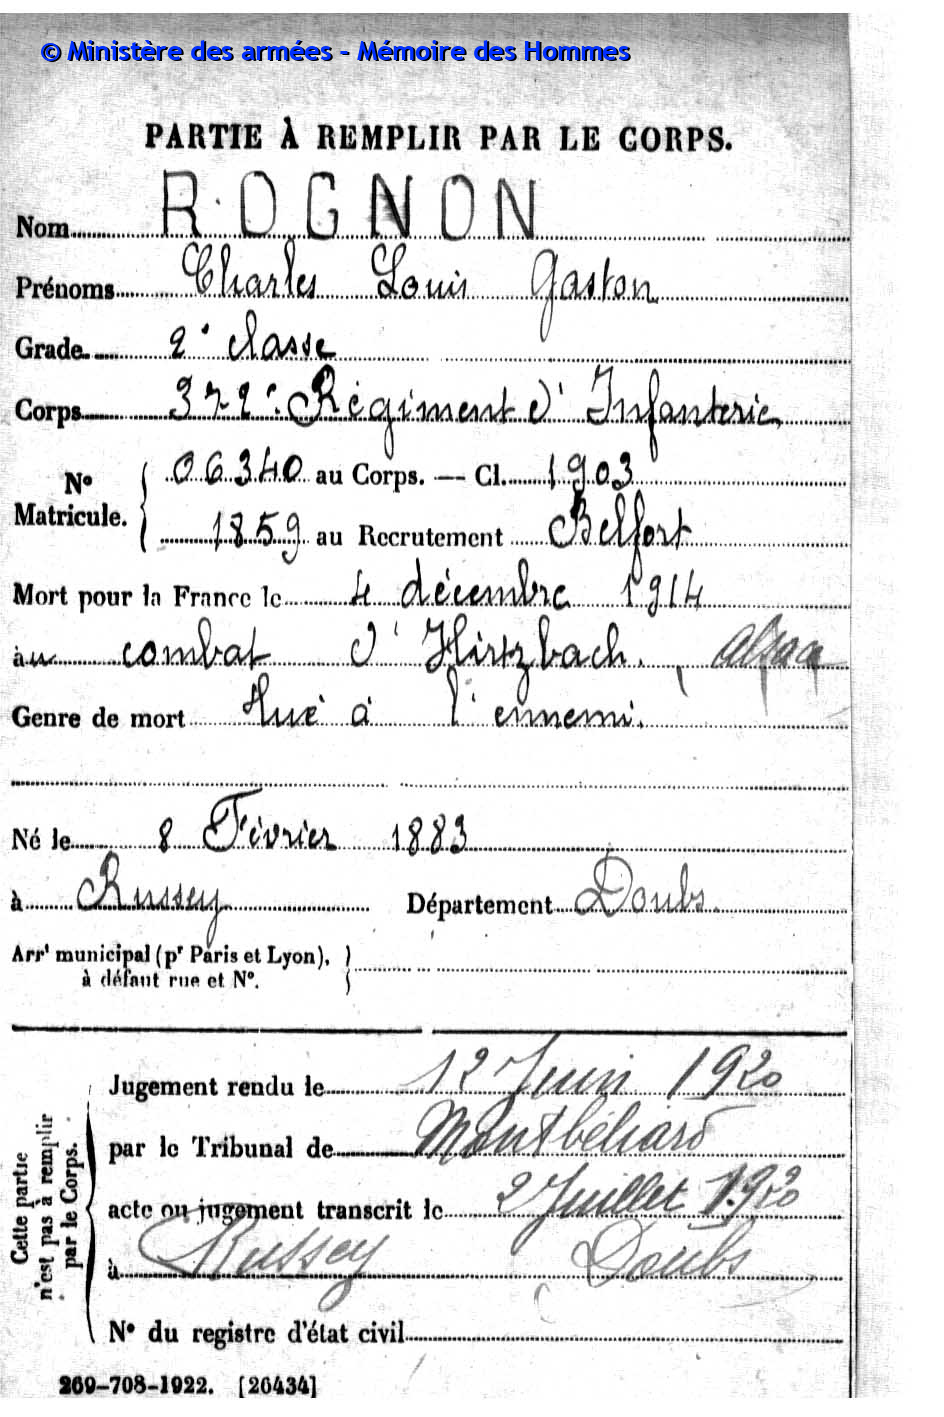 © Ministère des armées - Mémoire des Hommes
PARTIE À REMPLIR PAR LE CORPS.
Nom ROGNON
Prénoms Charles Louis Gaston
Grade 2e classe
Corps 372e Régiment d'Infanterie
N° Matricule. { 06340 au Corps. — Cl. 1903
1859 au Recrutement Belfort
Mort pour la France le 4 décembre 1914
au combat d'Hirtzbach. Alsace
Genre de mort Tué à l'ennemi.
Né le 8 Février 1883
à Russey Département Doubs
Arrt municipal (pr Paris et Lyon),
à défaut rue et N°.
Cette partie n'est pas à remplir par le Corps.
Jugement rendu le 12 Juin 1920
par le Tribunal de Montbéliard
acte ou jugement transcrit le 2 Juillet 1920
à Russey Doubs
N° du registre d'état civil
269-708-1922. [26434]